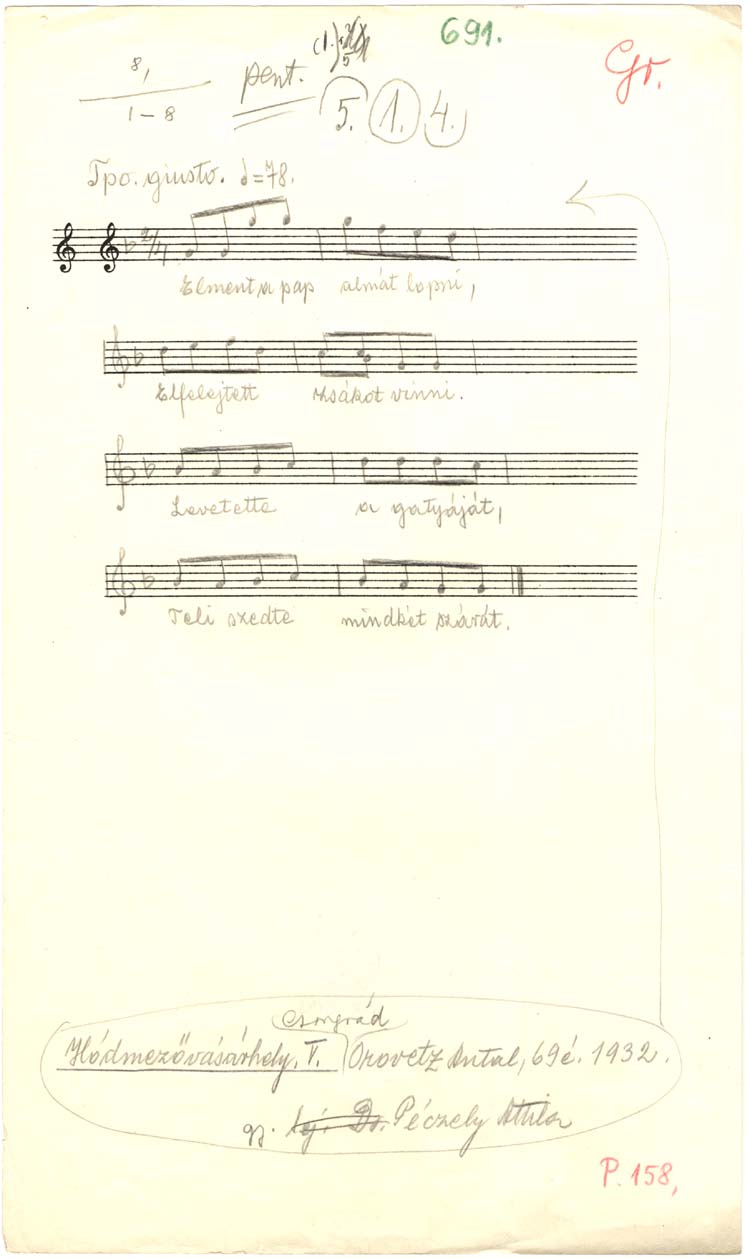 691.
Gr.
8,
1-8
pent.
5. 1. 4.
Tpo. giusto. ♩=78.
2/4
Elment a pap almát lopni,
Elfelejtett zsákot vinni.
Levetette a gatyáját,
Teli szedte mindkét szárát.
Csongrád
Hódmezővásárhely. T. Orovetz Antal, 69é. 1932.
gy. Dr. Péczely Attila
P. 158,